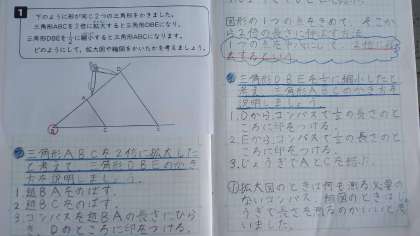 1
下のように形が同じ2つの三角形をかきました。
三角形ABCを2倍に拡大すると三角形DBEになり、
三角形DBEを1/2に縮小すると三角形ABCになります。
どのようにして、拡大図や縮図をかいたか考えましょう。
三角形ABCを2倍に拡大した
と考えて、三角形DBEのかき
方を説明しましょう。
1 辺BAをのばす。
2 辺BCをのばす。
3、コンパスを辺BAの長さにひら
き、Dのところに印をつける。
図形の1つの点をきめて、そこか
ら2倍の長さに
1つの点を中心にして、2倍に
三角形DBEを1/2に縮小したと
考えて、三角形ABCのかき方を
説明しましょう。
1、Dからコンパスで1/2の長さのと
ころに印をつける。
2、Eからコンパスで1/2の長さのと
ころに印をつける。
3、じょうぎでAとCを結ぶ。
拡大図のときは何も測る必要の
ないコンパス、縮図のときはじょ
うぎで長さを測るのがいいと思い
ました。